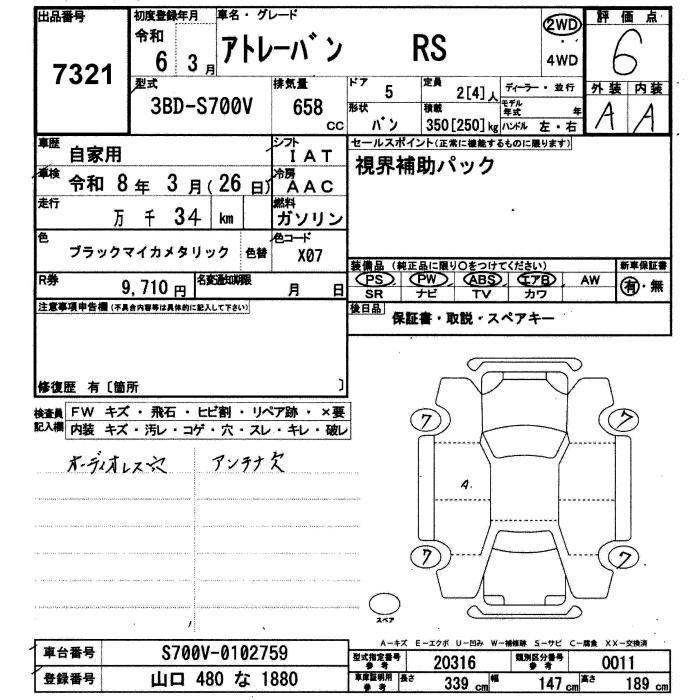 出品番号 7321
初度登録年月 令和 6年 3月
車名・グレード アトレーバン RS
2WD ・ 4WD
評価点 6
外装 A 内装 A
型式 3BD-S700V
排気量 658 CC
ドア 5
形状 バン
定員 2[4]人
積載 350[250]kg
ディーラー・並行
モデル年式 年
ハンドル 左・右
車歴 自家用
シフト IAT
車検 令和 8年 3月(26日)
冷房 AAC
走行 万千 34 km
燃料 ガソリン
色 ブラックマイカメタリック 色替
色コード X07
R券 9,710円
名変通知期限 月 日
セールスポイント(正常に機能するものに限ります)
視界補助パック
装備品(純正品に限り○をつけてください)
PS PW ABS エアB AW
SR ナビ TV カワ
新車保証書 有・無
後日品 保証書・取説・スペアキー
注意事項申告欄(不具合内容等は具体的に記入して下さい)
修復歴 有〔箇所 〕
検査員記入欄
FW キズ・飛石・ヒビ割・リペア跡・×要
内装 キズ・汚レ・コゲ・穴・スレ・キレ・破レ
オーディオレス穴 アンテナ欠
7 7
A
7 7
スペア
A−キズ E−エクボ U−凹み W−補修跡 S−サビ C−腐食 XX−交換済
車台番号 S700V-0102759
登録番号 山口 480 な 1880
型式指定番号 参考 20316
類別区分番号 参考 0011
車庫証明用 参考 長さ 339cm 幅 147cm 高さ 189cm